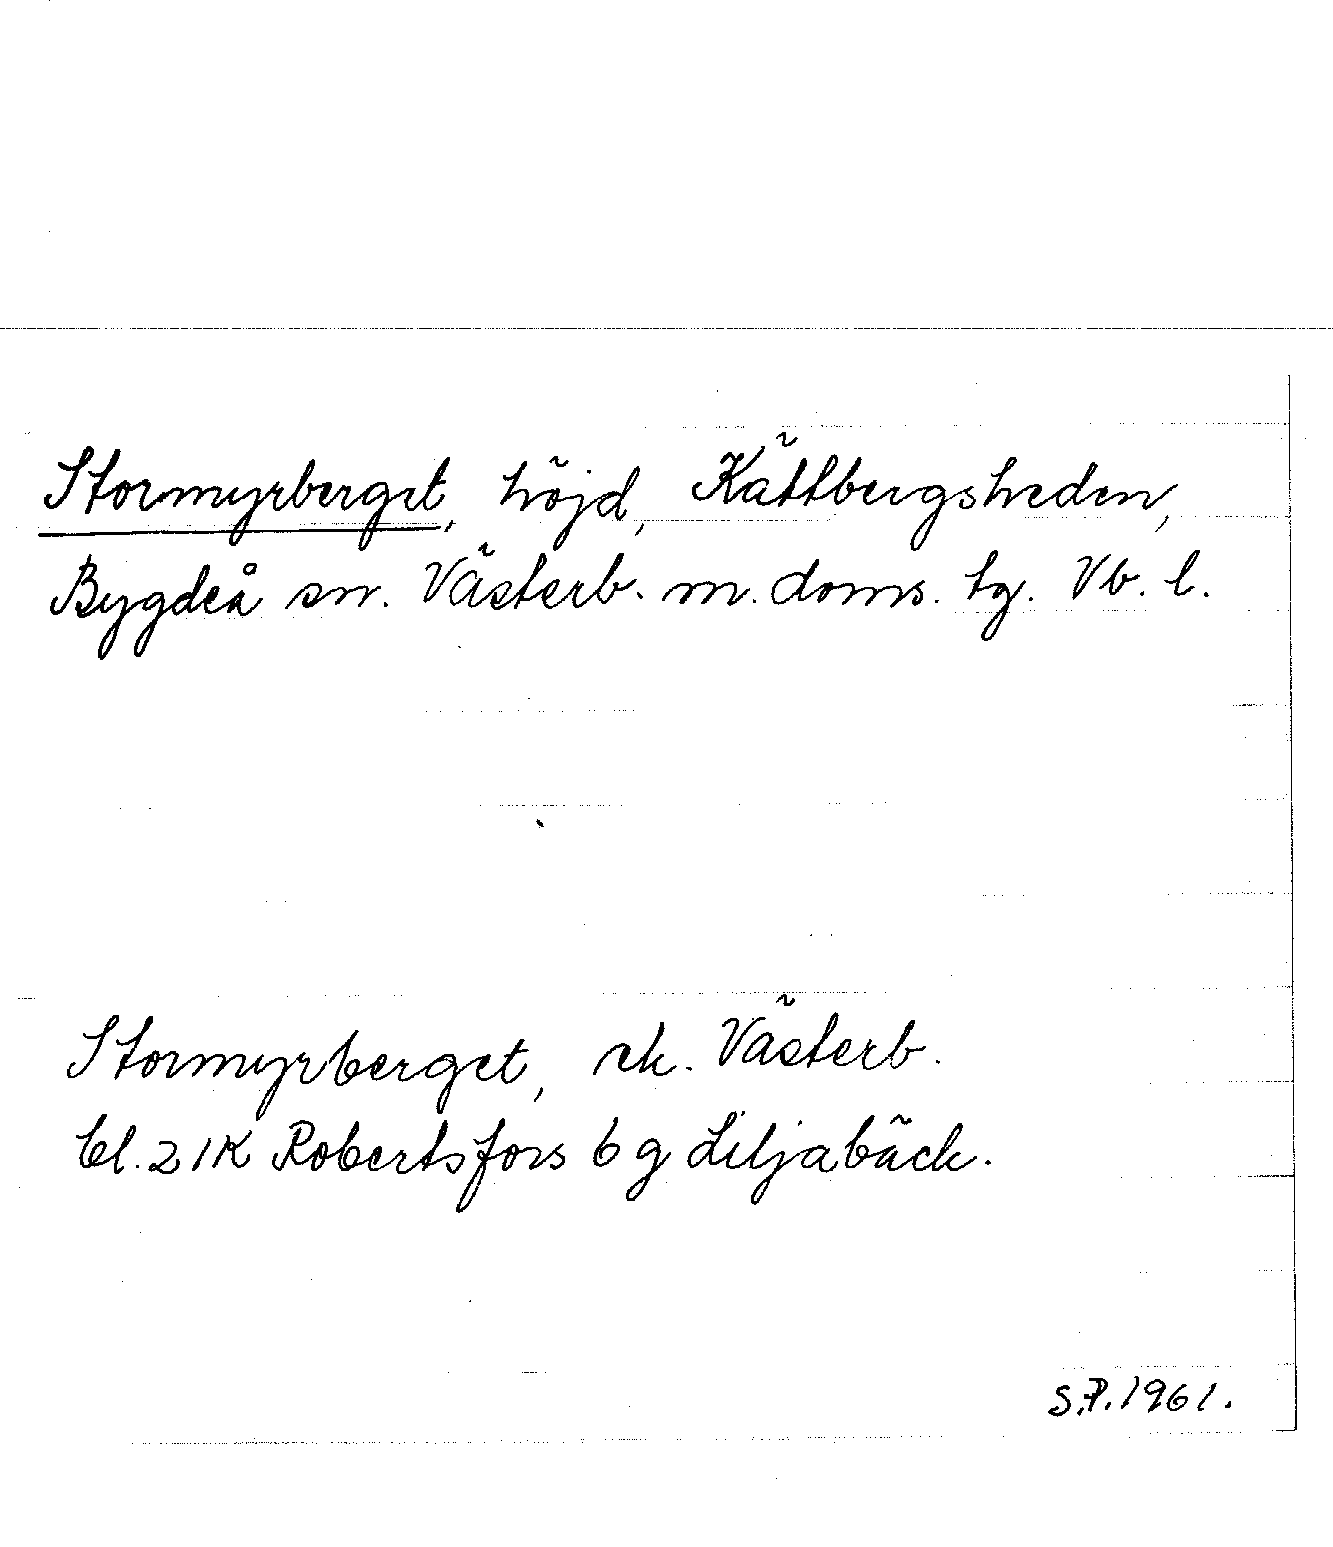 Stormyrberget, höjd, Kättbergsheden,
Bygdeå sn. Västerb. m. doms. tg. Vb. l.
Stormyrberget, ek. Västerb.
bl. 21K Robertsfors 6 g Liljabäck.
S.P. 1961.